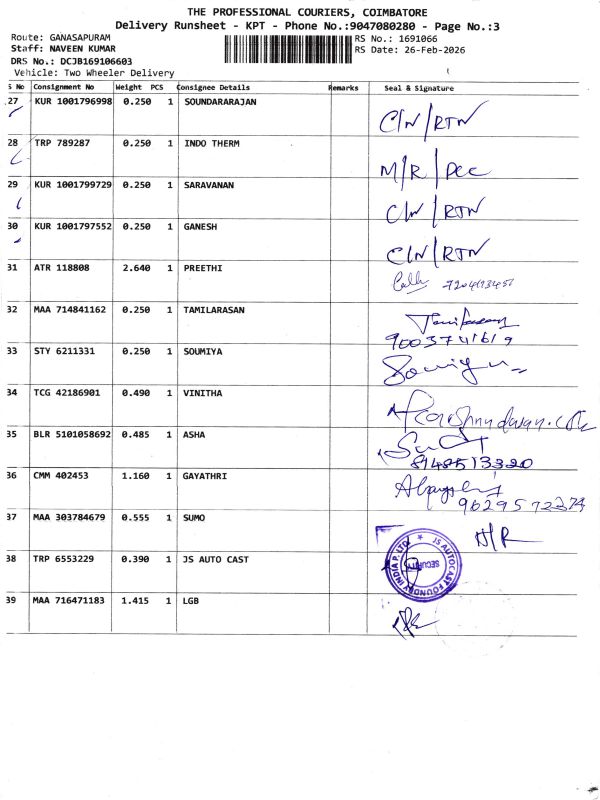 THE PROFESSIONAL COURIERS, COIMBATORE
Delivery Runsheet - KPT - Phone No.:9047080280 - Page No.:3
Route: GANASAPURAM
Staff: NAVEEN KUMAR
DRS No.: DCJB169106603
Vehicle: Two Wheeler Delivery
RS No.: 1691066
RS Date: 26-Feb-2026
S No Consignment No Weight PCS Consignee Details Remarks Seal & Signature
27 KUR 1001796998 0.250 1 SOUNDARARAJAN C/N/RTN
28 TRP 789287 0.250 1 INDO THERM M/R/PCC
29 KUR 1001799729 0.250 1 SARAVANAN C/N/RTN
30 KUR 1001797552 0.250 1 GANESH C/N/RTN
31 ATR 118808 2.640 1 PREETHI
32 MAA 714841162 0.250 1 TAMILARASAN
9003741619
33 STY 6211331 0.250 1 SOUMIYA
34 TCG 42186901 0.490 1 VINITHA
35 BLR 5101058692 0.485 1 ASHA
8148513320
36 CMM 402453 1.160 1 GAYATHRI
9629572374
37 MAA 303784679 0.555 1 SUMO N/R
38 TRP 6553229 0.390 1 JS AUTO CAST
JS AUTOCAST FOUNDRY INDIA P. LTD.
SECURITY
39 MAA 716471183 1.415 1 LGB